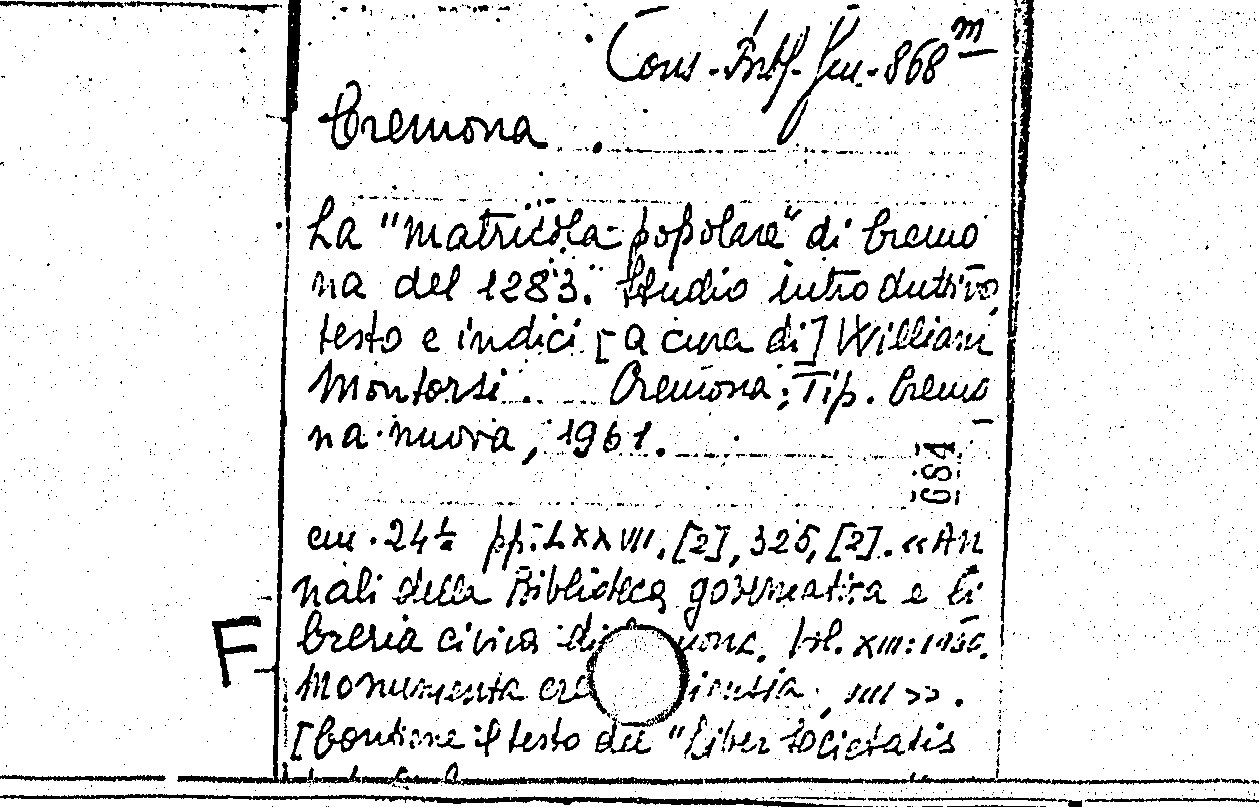 Cons. 868 m
Cremona.
La "matricola popolare" di Cremo
na del 1283. Studio introduttivo,
testo e indici [a cura di] William
Montorsi. Cremona; Tip. Cremo
na nuova, 1961.
684
cm. 24½ pp. LXXVIII, [2], 325, [2]. «An
nali della Biblioteca governativa e li
breria civica di Vol. XIII: 
Monumenta III».
F
[Contiene il testo del "Liber Societatis